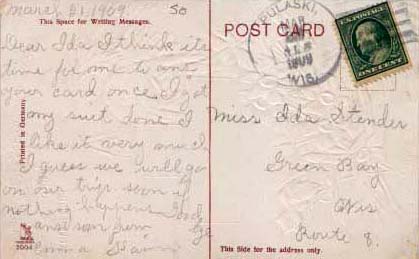 march 21, 1909
50
This Space for Writing Messages.
Dear Ida I think its
time for me to ans
your card once. I got
my suit done I
like it very much
I guess we will go
on our trip soon if
nothing happens
ans soon from
Printed in Germany
2004
POST CARD
PULASKI,
MAR
A.M.
1909
WIS.
U.S. POSTAGE
ONE CENT
Miss Ida Stender
Green Bay
Wis
Route 8.
This Side for the address only.